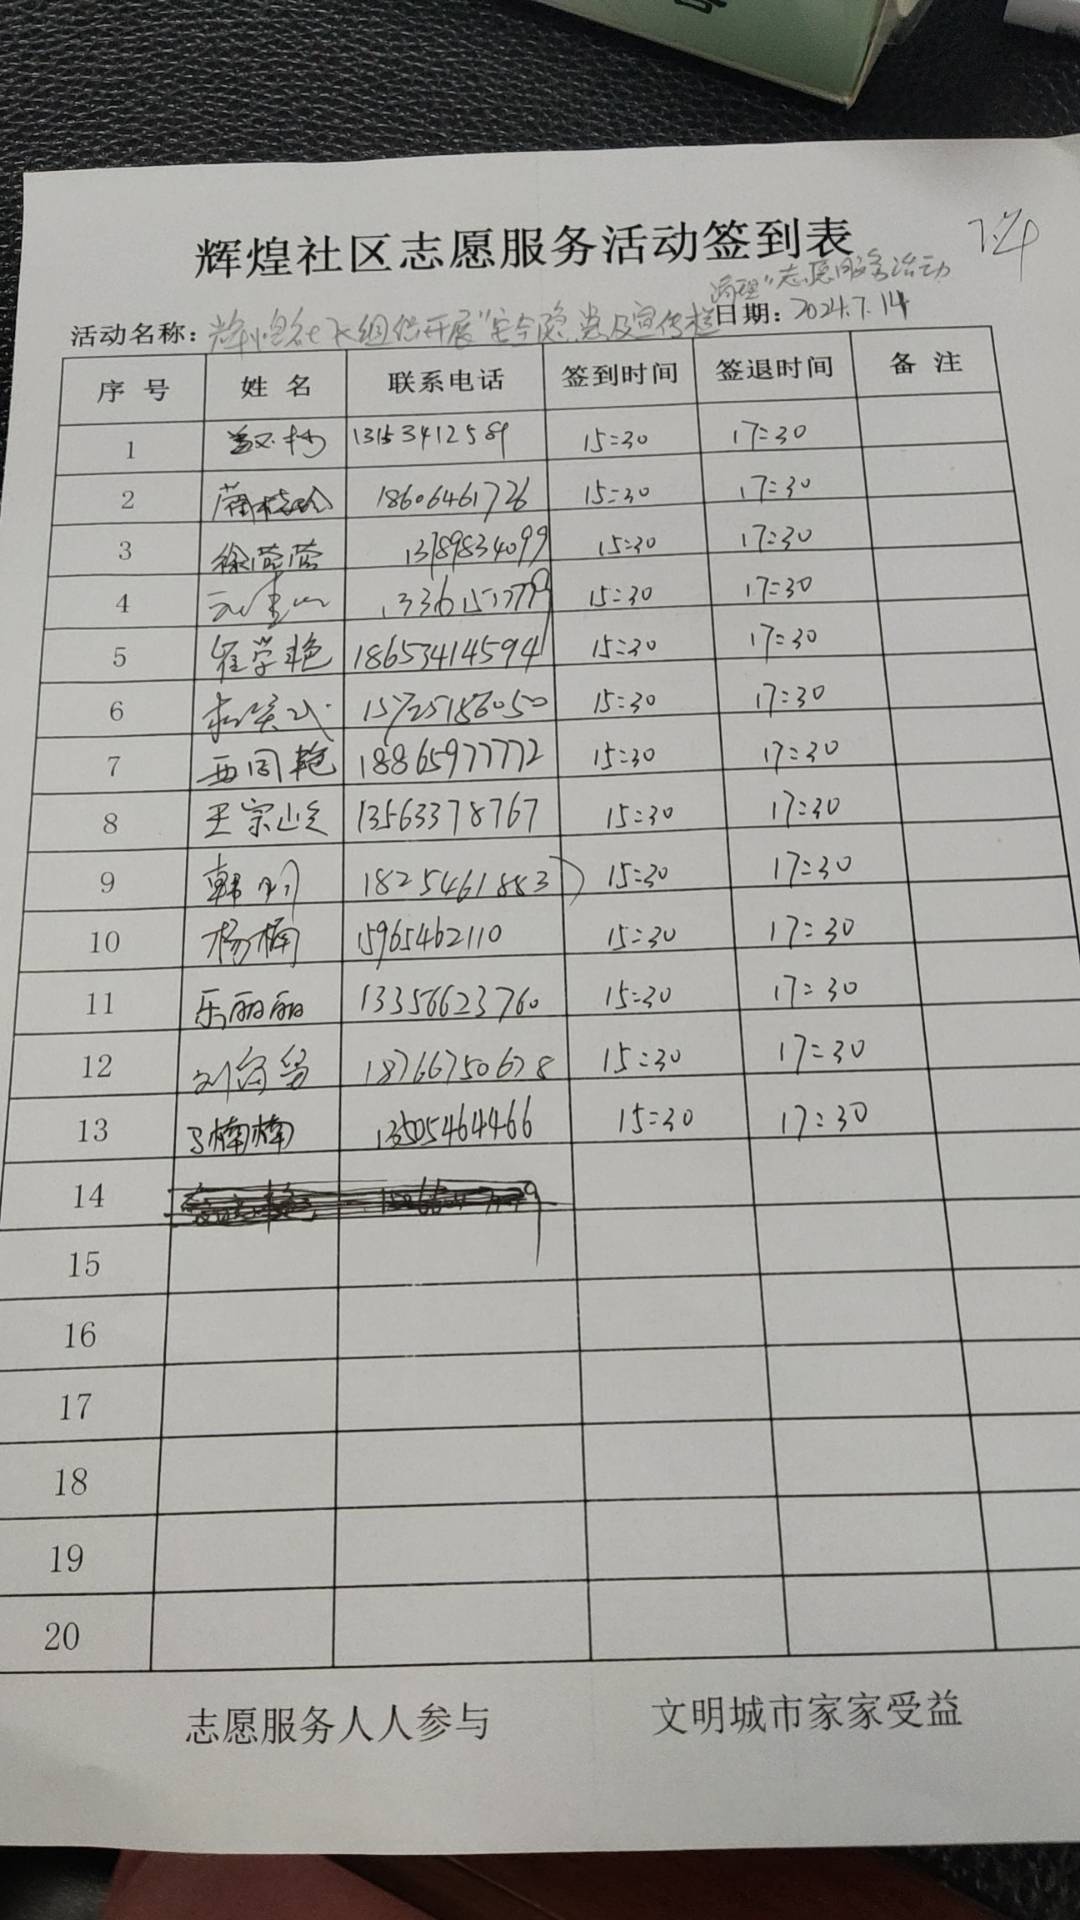 辉煌社区志愿服务活动签到表
7.14
清理"志愿服务活动
活动名称：辉煌社区组织开展"安全隐患及宣传栏 日期：2024.7.14
序号 姓名 联系电话 签到时间 签退时间 备注
1 13153412589 15:30 17:30
2 18606461726 15:30 17:30
3 徐莹莹 13789834099 15:30 17:30
4 15:30 17:30
5 崔学艳 18653414594 15:30 17:30
6 15725186050 15:30 17:30
7 西同艳 18865977772 15:30 17:30
8 王宗 13563378767 15:30 17:30
9 韩 18254618883 15:30 17:30
10 杨楠 15965462110 15:30 17:30
11 乐丽丽 13356623760 15:30 17:30
12 刘 18766750678 15:30 17:30
13 马楠楠 13505464466 15:30 17:30
14
15
16
17
18
19
20
志愿服务人人参与 文明城市家家受益